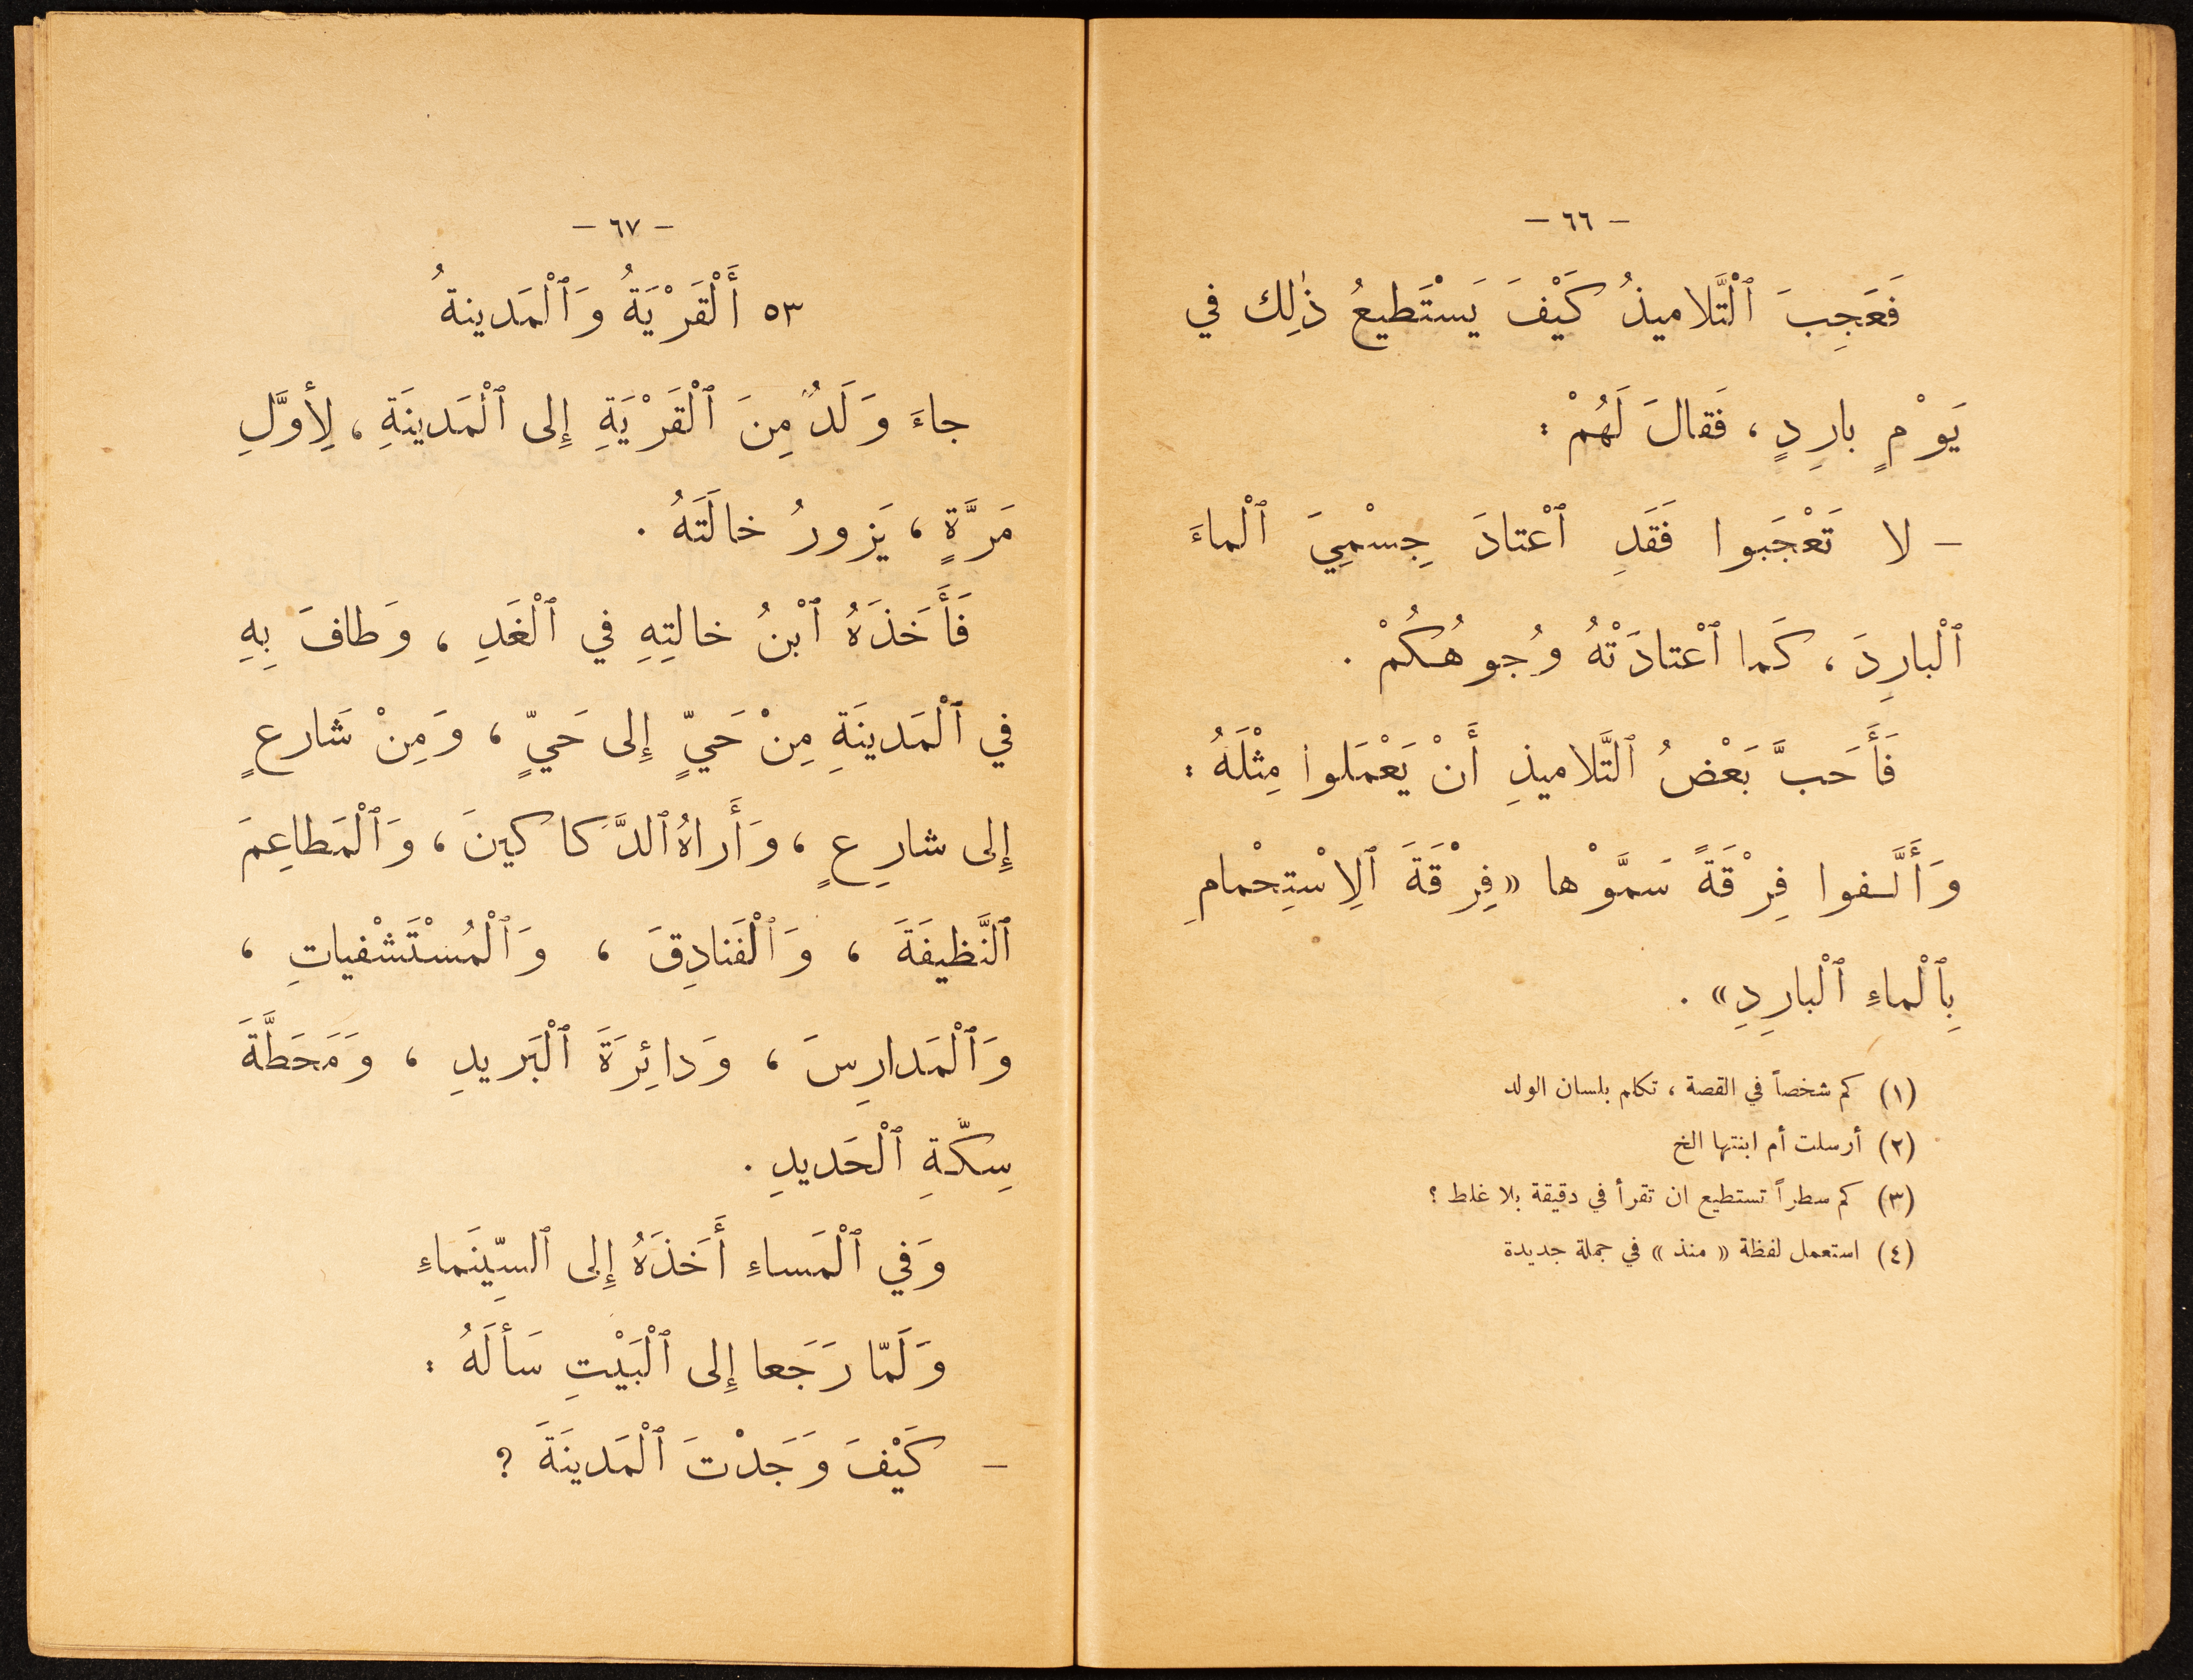 – ٦٦ –
فَعَجِبَ ٱلْتَّلاميذُ كَيْفَ يَسْتَطيعُ ذٰلِك في
يَوْمٍ بارِدٍ ، فَقالَ لَهُمْ :
– لا تَعْجَبوا فَقَدِ ٱعْتادَ جِسْمِيَ ٱلْماءَ
ٱلْبارِدَ ، كَما ٱعْتادَتْهُ وُجوهُكُمْ .
فَأَحَبَّ بَعْضُ ٱلتَّلاميذِ أَنْ يَعْمَلوا مِثْلَهُ :
وَأَلَّفوا فِرْقَةً سَمَّوْها « فِرْقَةَ ٱلِاسْتِحْمامِ
بِٱلْماءِ ٱلْبارِدِ » .
(١) كم شخصاً في القصة ، تكلم بلسان الولد
(٢) أرسلت أم ابنتها الخ
(٣) كم سطراً تستطيع ان تقرأ في دقيقة بلا غلط ؟
(٤) استعمل لفظة « منذ » في جملة جديدة
– ٦٧ –
٥٣ أَلْقَرْيَةُ وَٱلْمَدينةُ
جاءَ وَلَدٌ مِنَ ٱلْقَرْيَةِ إِلى ٱلْمَدينَةِ ، لِأوَّلِ
مَرَّةٍ ، يَزورُ خالَتَهُ .
فَأَخَذَهُ ٱبْنُ خالتِهِ في ٱلْغَدِ ، وَطافَ بِهِ
في ٱلْمَدينَةِ مِنْ حَيٍّ إِلى حَيٍّ ، وَمِنْ شَارعٍ
إِلى شارِعٍ ، وَأَراهُ ٱلدَّكاكينَ ، وَٱلْمَطاعِمَ
ٱلنَّظيفَةَ ، وَٱلْفَنادِقَ ، وَٱلْمُسْتَشْفياتِ ،
وَٱلْمَدارِسَ ، وَدائِرَةَ ٱلْبَريدِ ، وَمَحَطَّةَ
سِكّةِ ٱلْحَديدِ .
وَفي ٱلْمَساءِ أَخَذَهُ إِلى ٱلسِّينَماءِ
وَلَمّا رَجَعا إِلى ٱلْبَيْتِ سَألَهُ :
– كَيْفَ وَجَدْتَ ٱلْمَدينَةَ ؟